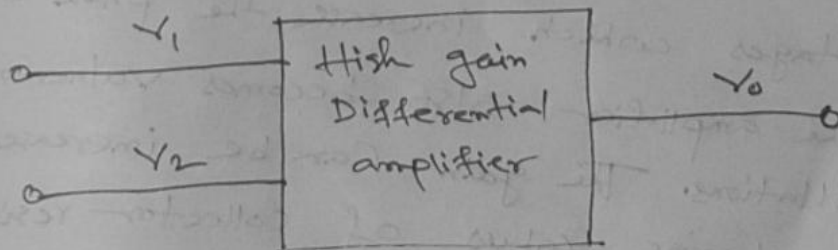 V1
High gain
Differential
amplifier
V0
V2